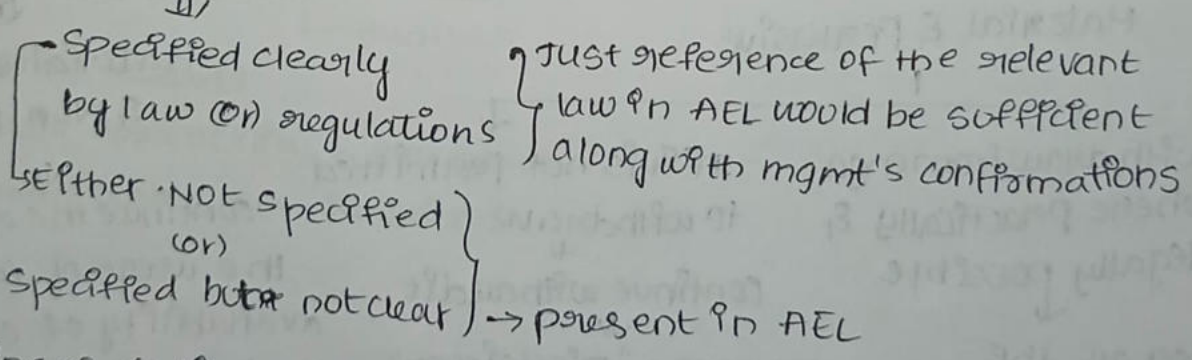 Specified clearly
by law (or) regulations
Just reference of the relevant
law in AEL would be sufficient
along with mgmt's confirmations
Either NOT specified
(or)
Specified but not clear
→ present in AEL